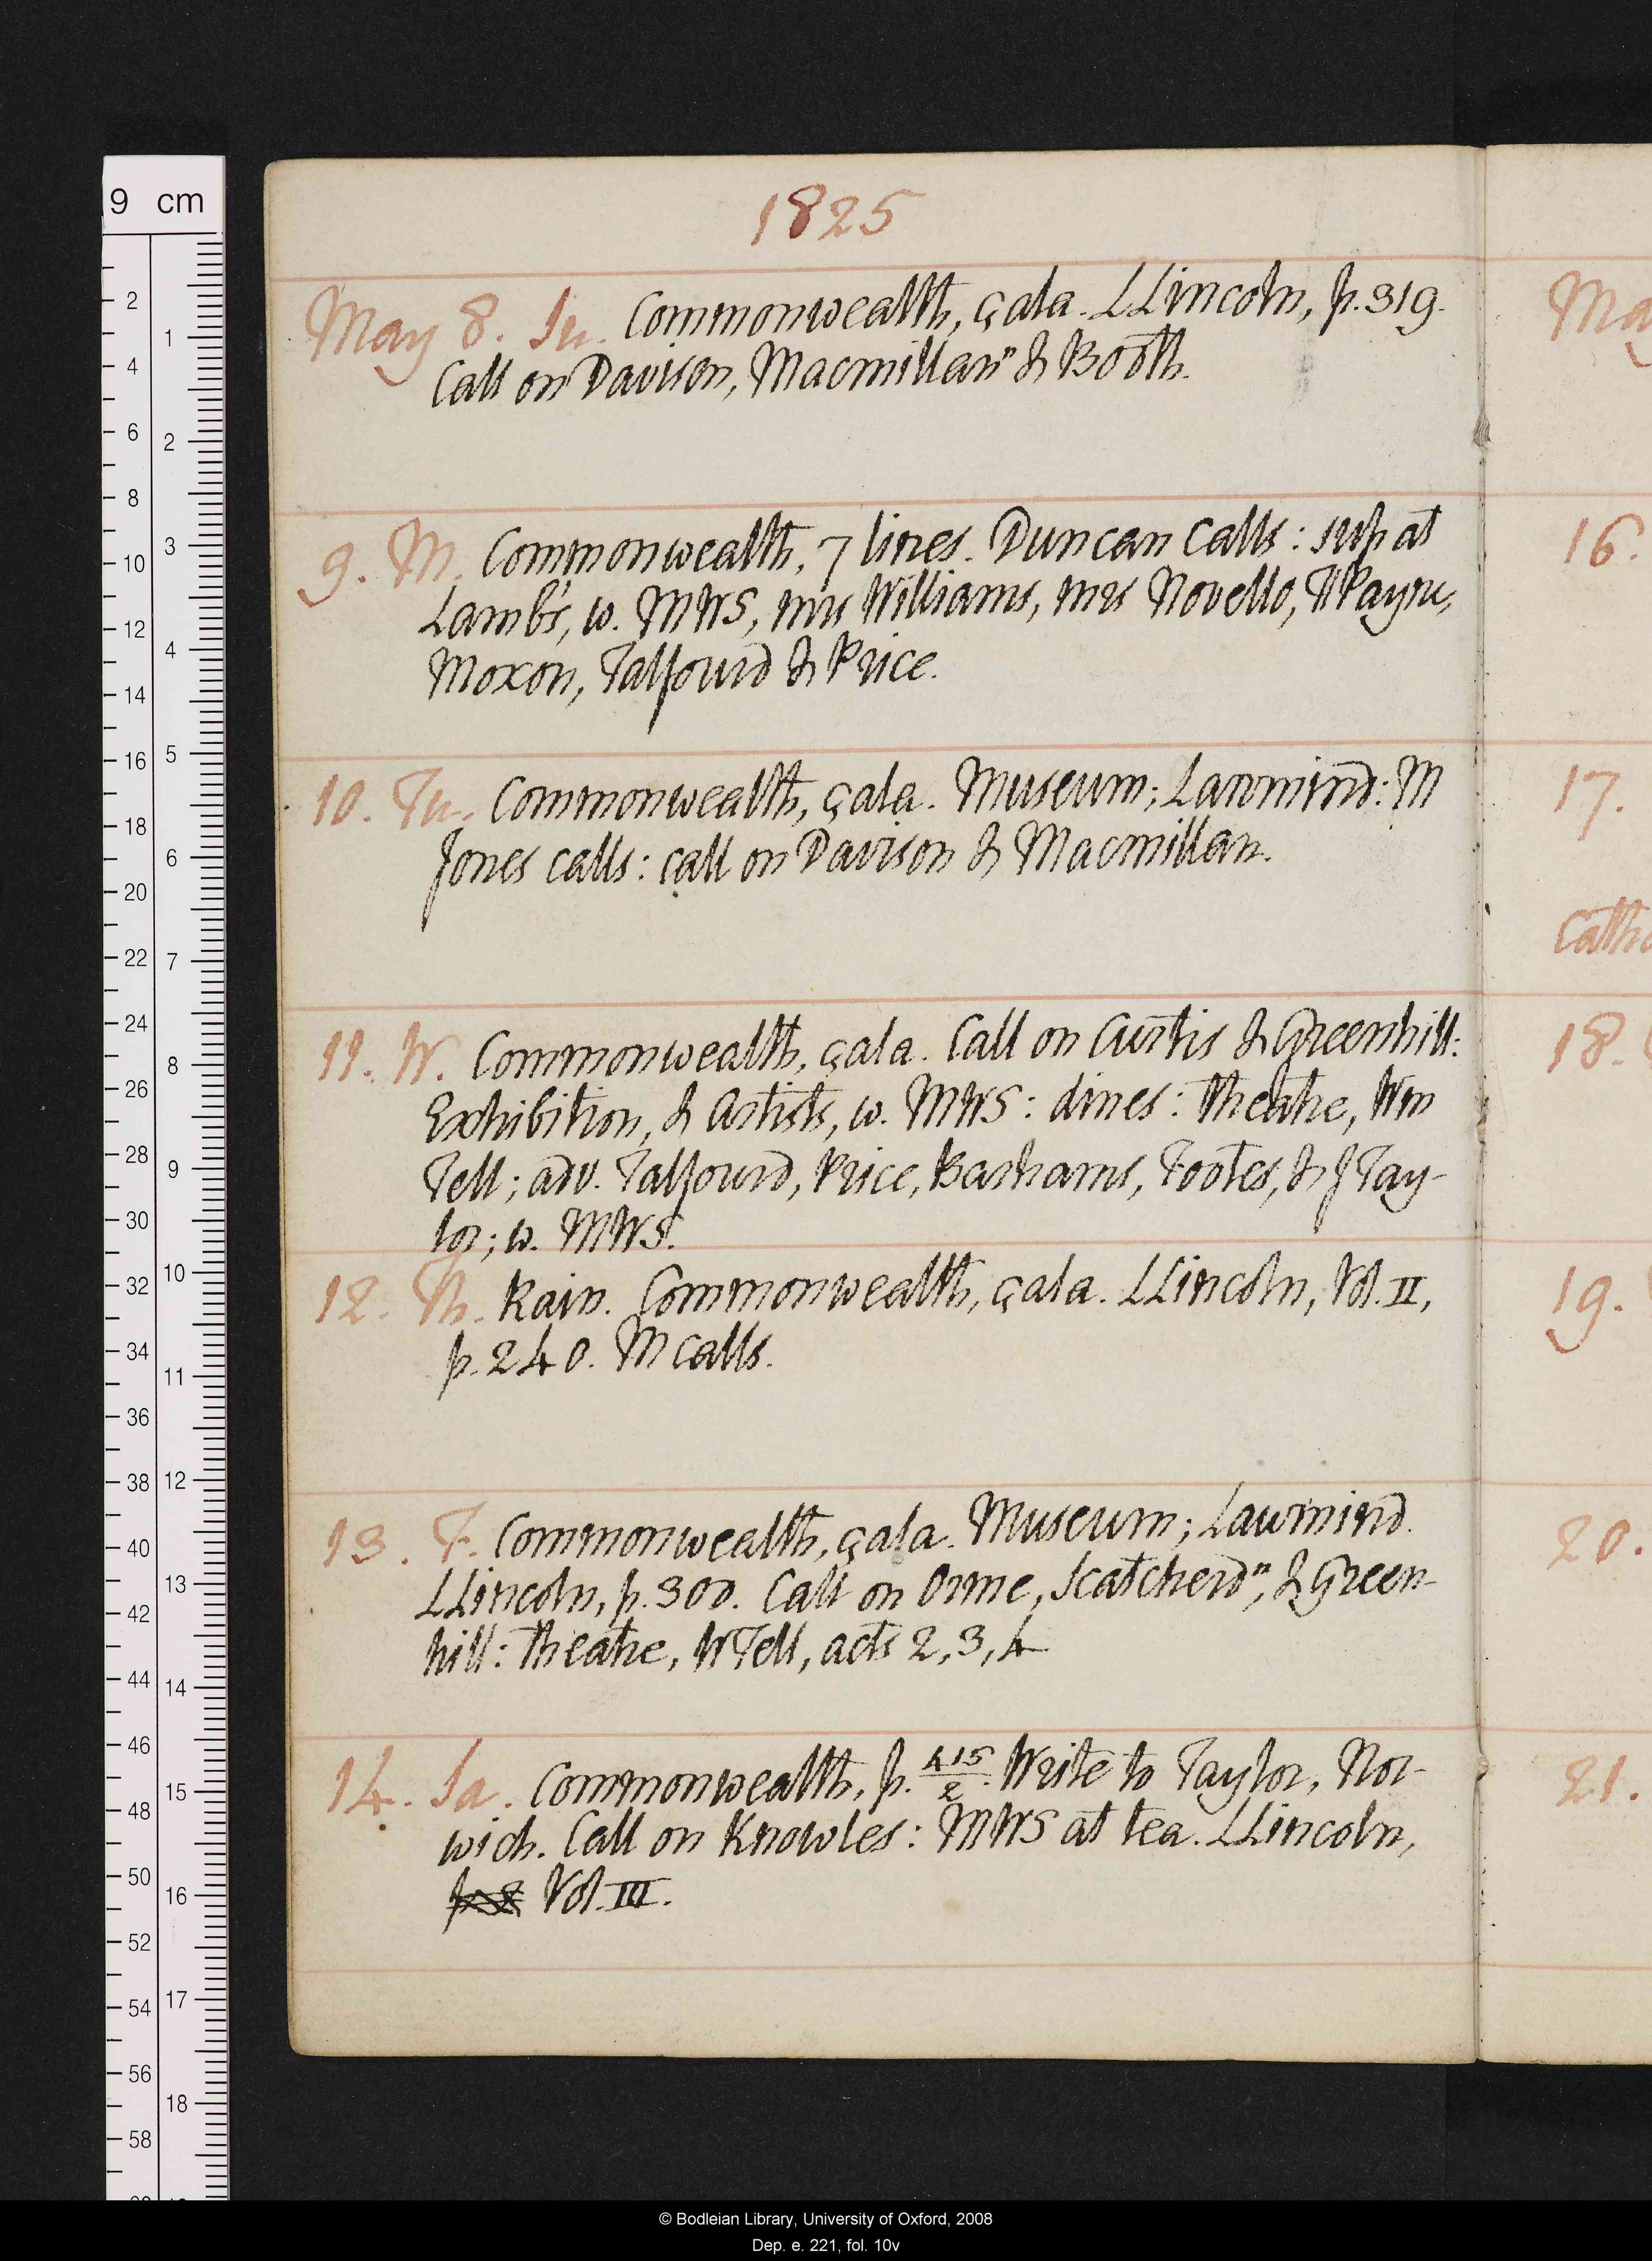 9 cm
1825
May 8. Su. Commonwealth, çala. LLincoln, p. 319.
Call on Davison, Macmillan" & Booth.
9. M. Commonwealth, 7 lines. Duncan calls: sup at
Lamb's, w. MWS, mrs Williams, mrs Novello, Payne,
Moxon, Talfourd & Price.
10. Tu. Commonwealth, çala. Museum; Lawmind: M
Jones calls: call on Davison & Macmillan.
11. W. Commonwealth, çala. Call on Curtis & Greenhill:
Exhibition, & Artists, w. MWS: dines: theatre, Wm
Tell; adv. Talfourd, Price, Barhams, Footes, & J Tay-
lor; w. MWS.
12. Th. Rain. Commonwealth, çala. LLincoln, Vol. II,
p. 240. M calls.
13. F. Commonwealth, çala. Museum; Lawmind.
LLincoln, p. 300. Call on Orme, Scatcherd", & Green-
hill: theatre, WTell, acts 2, 3, 4
14. Sa. Commonwealth, p. 415/2. Write to Taylor, Nor-
wich. Call on Knowles: MWS at tea. LLincoln,
Vol. III.
Ma
16.
17.
Catho
18.
19.
20.
21.
© Bodleian Library, University of Oxford, 2008
Dep. e. 221, fol. 10v